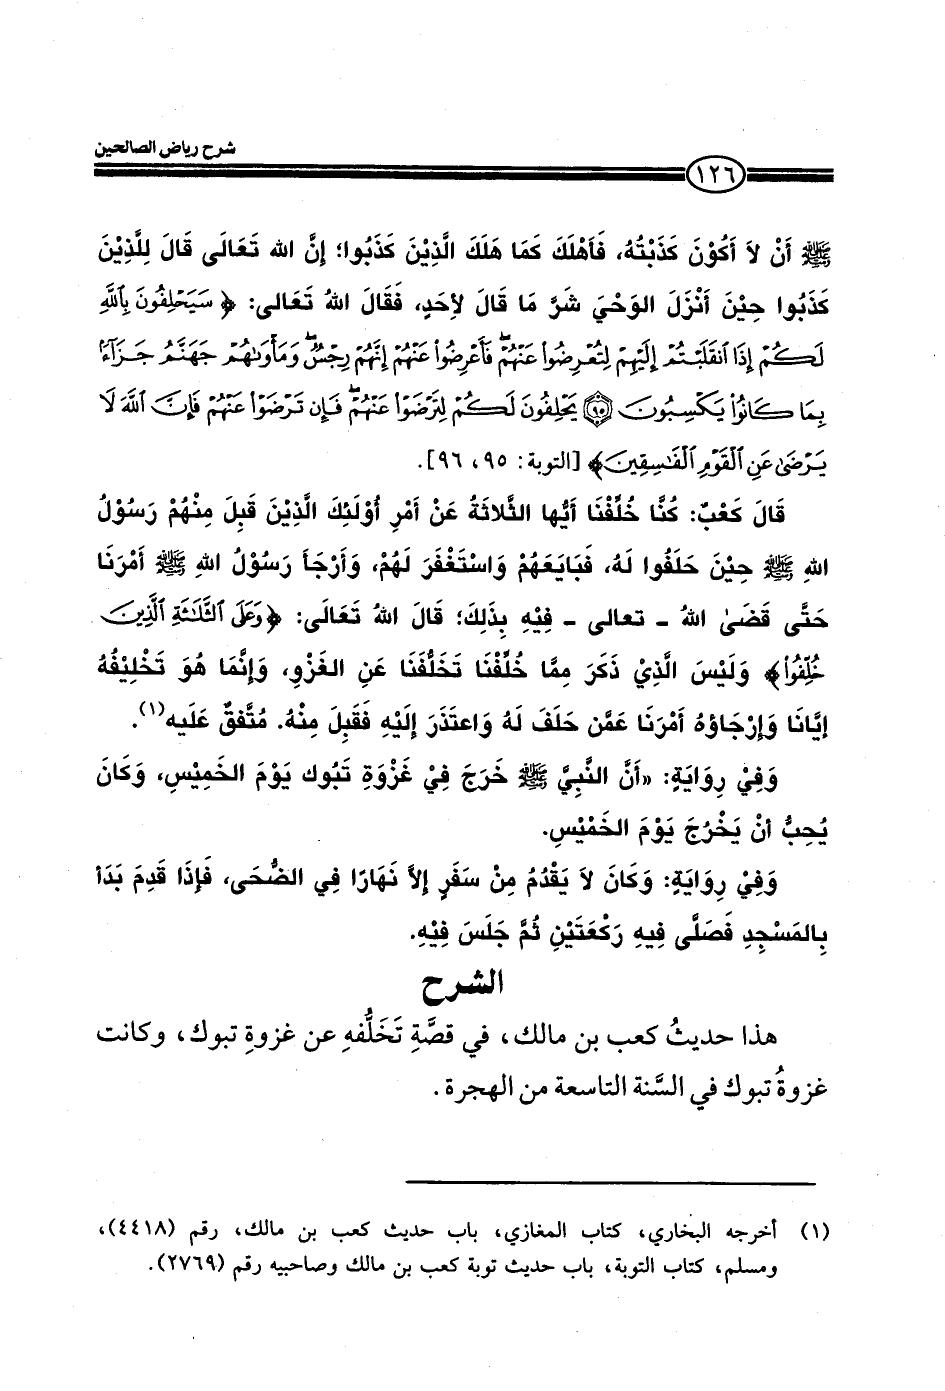 شرح رياض الصالحين
١٢٦
ﷺ أَنْ لاَ أَكُوْنَ كَذَبْتُهُ، فَأَهْلَكَ كَمَا هَلَكَ الَّذِيْنَ كَذَبُوا؛ إِنَّ الله تَعَالَى قَالَ لِلَّذِيْنَ
كَذَبُوا حِيْنَ أَنْزَلَ الوَحْيَ شَرَّ مَا قَالَ لأِحَدٍ، فَقَالَ اللهُ تَعَالى: ﴿ سَيَحْلِفُونَ بِاللَّهِ
لَكُمْ إِذَا انْقَلَبْتُمْ إِلَيْهِمْ لِتُعْرِضُوا عَنْهُمْ فَأَعْرِضُوا عَنْهُمْ إِنَّهُمْ رِجْسٌ وَمَأْوَاهُمْ جَهَنَّمُ جَزَاءً
بِمَا كَانُوا يَكْسِبُونَ ﴿٩٥﴾ يَحْلِفُونَ لَكُمْ لِتَرْضَوْا عَنْهُمْ فَإِن تَرْضَوْا عَنْهُمْ فَإِنَّ اللَّهَ لَا
يَرْضَىٰ عَنِ الْقَوْمِ الْفَاسِقِينَ﴾ [التوبة: ٩٥، ٩٦].
قَالَ كَعْبٌ: كُنَّا خُلِّفْنَا أَيُّها الثَّلاثَةُ عَنْ أَمْرِ أُوْلَئِكَ الَّذِيْنَ قَبِلَ مِنْهُمْ رَسُوْلُ
اللهِ ﷺ حِيْنَ حَلَفُوا لَهُ، فَبَايَعَهُمْ وَاسْتَغْفَرَ لَهُمْ، وَأَرْجَأَ رَسُوْلُ اللهِ ﷺ أَمْرَنَا
حَتَّى قَضَىٰ اللهُ - تعالى - فِيْهِ بِذَلِكَ؛ قَالَ اللهُ تَعَالَى: ﴿وَعَلَى الثَّلَاثَةِ الَّذِينَ
خُلِّفُوا﴾ وَلَيْسَ الَّذِيْ ذَكَرَ مِمَّا خُلِّفْنَا تَخَلُّفَنَا عَنِ الغَزْوِ، وَإِنَّمَا هُوَ تَخْلِيْفُهُ
إِيَّانَا وَإِرْجَاؤُهُ أَمْرَنَا عَمَّن حَلَفَ لَهُ وَاعتَذَرَ إِلَيْهِ فَقَبِلَ مِنْهُ. مُتَّفقٌ عَلَيه(١).
وَفِيْ رِوَايَةٍ: «أَنَّ النَّبِيَّ ﷺ خَرَجَ فِيْ غَزْوَةِ تَبُوك يَوْمَ الخَمِيْسِ، وَكَانَ
يُحِبُّ أنْ يَخْرُجَ يَوْمَ الخَمْيْسِ.
وَفِيْ رِوَايَةٍ: وَكَانَ لاَ يَقْدُمُ مِنْ سَفَرٍ إِلاَّ نَهَارًا فِي الضُّحَى، فَإِذَا قَدِمَ بَدَأ
بِالمَسْجِدِ فَصَلَّى فِيهِ رَكْعَتَيْنِ ثُمَّ جَلَسَ فِيْهِ.
الشرح
هذا حديثُ كعب بن مالك، في قصَّةِ تَخَلُّفهِ عن غزوةِ تبوك، وكانت
غزوةُ تبوك في السَّنة التاسعة من الهجرة.
(١) أخرجه البخاري، كتاب المغازي، باب حديث كعب بن مالك، رقم (٤٤١٨)،
ومسلم، كتاب التوبة، باب حديث توبة كعب بن مالك وصاحبيه رقم (٢٧٦٩).